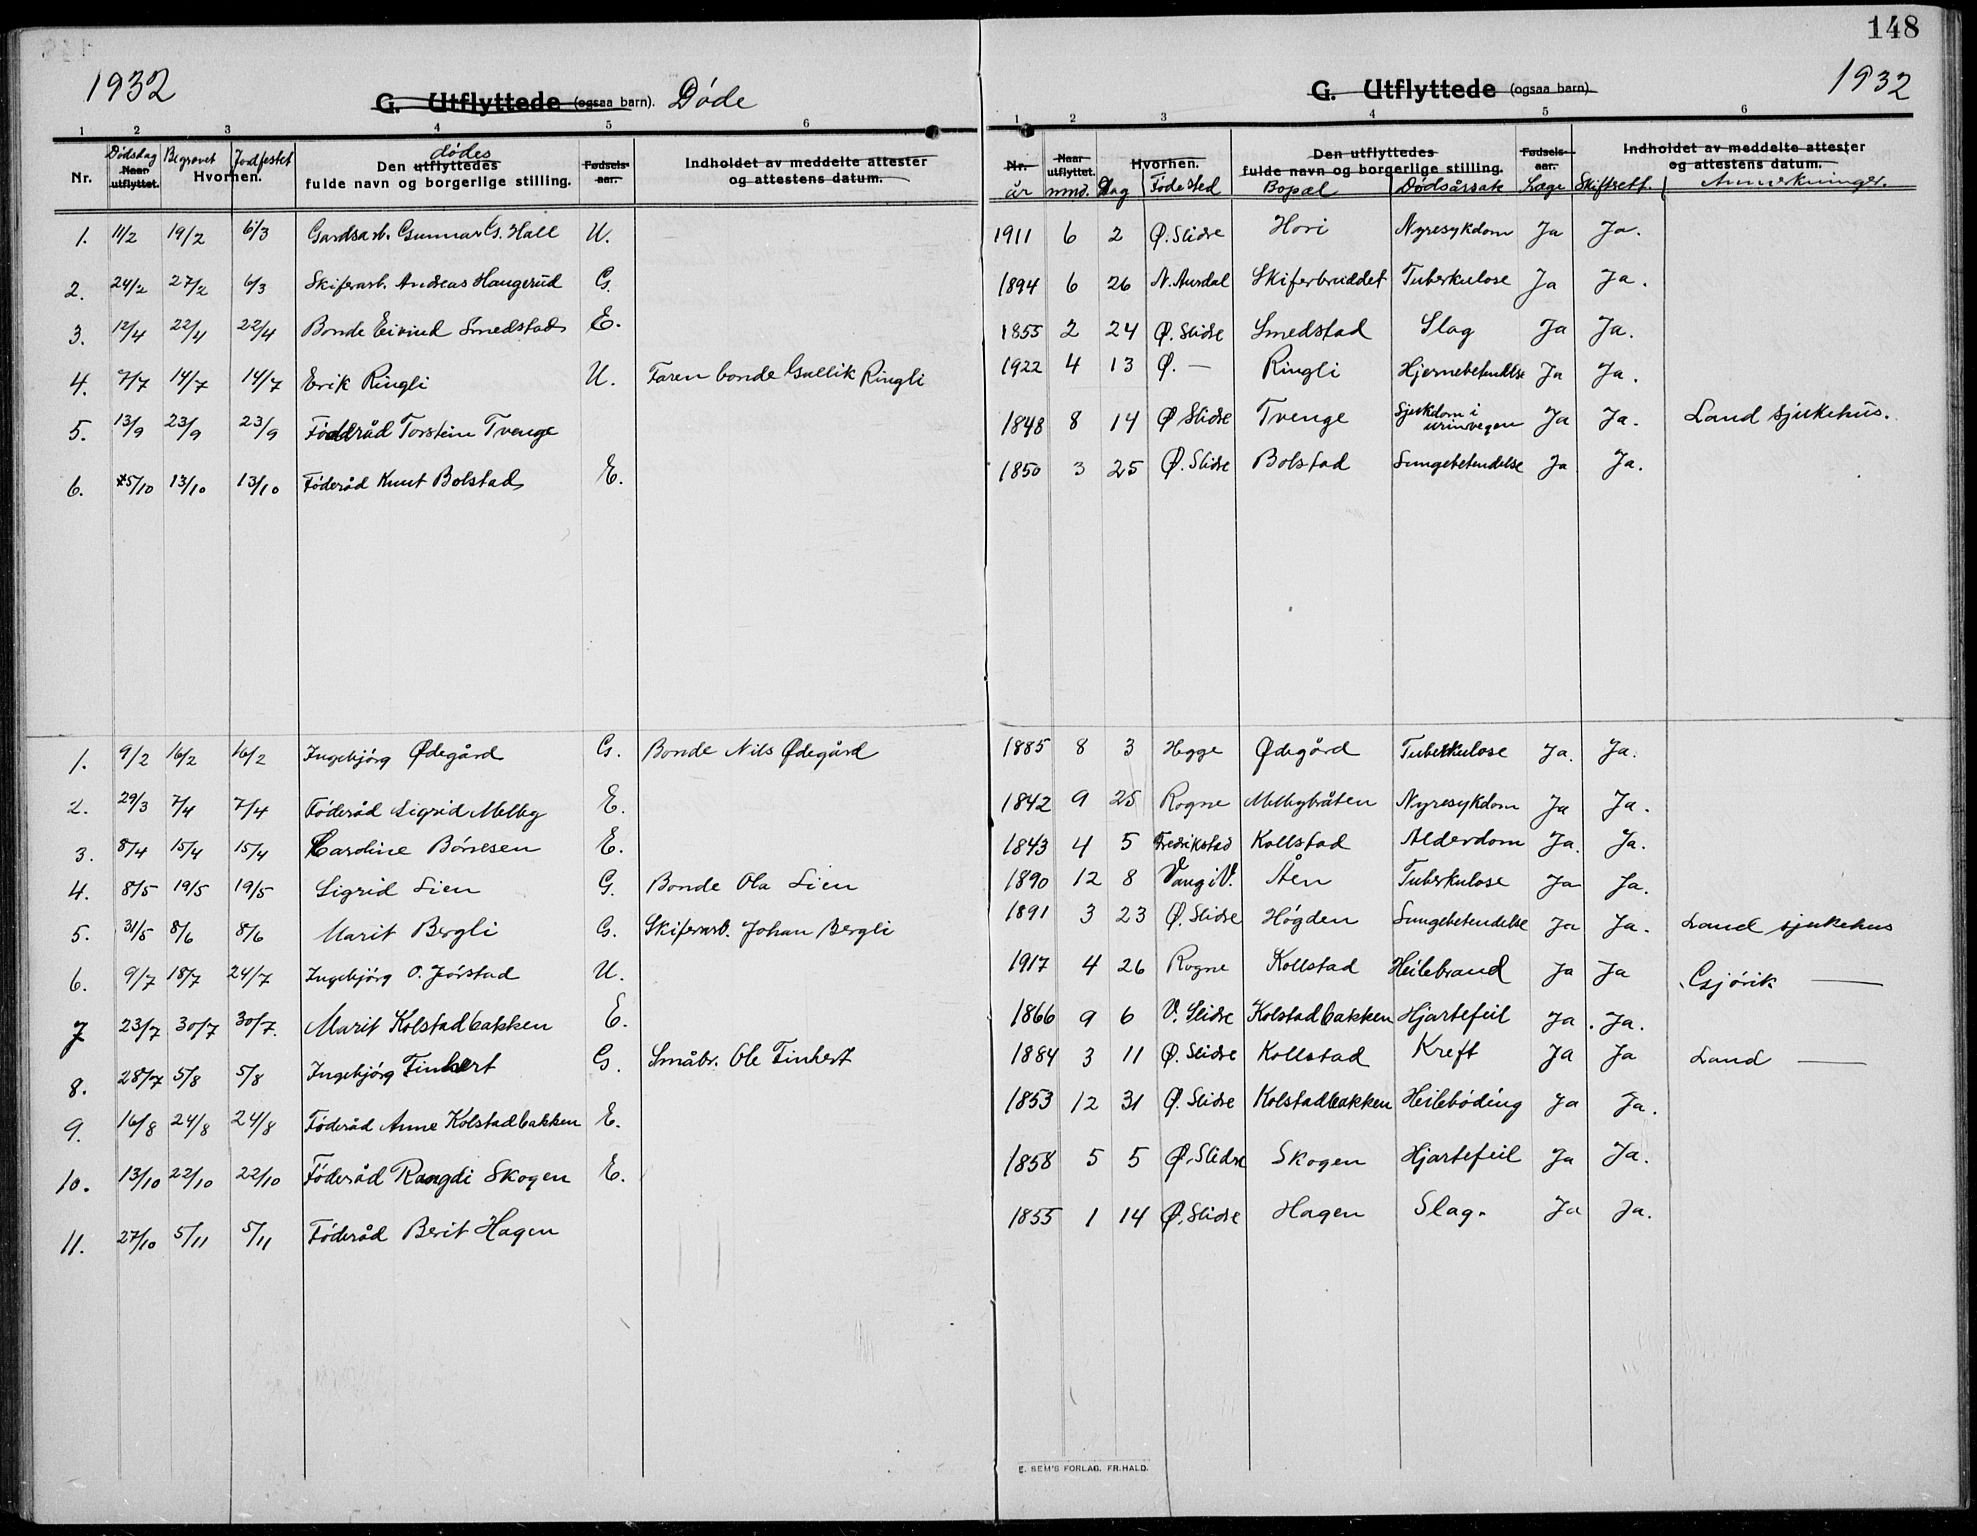 148
1932
G. Utflyttede (ogsaa barn). Døde
G. Utflyttede (ogsaa barn)
1932
1 2 3 4 5 6
1 2 3 4 5 6
Nr. Dødsdag Naar utflyttet. Begravet Jordfestet Hvorhen. Den utflyttedes dødes fulde navn og borgerlige stilling. Fødsels-aar. Indholdet av meddelte attester og attestens datum.
Nr. år Naar utflyttet. mnd. Dag Hvorhen. Fødested Den utflyttedes fulde navn og borgerlige stilling. Bopæl Dødsårsak Fødsels-aar. Læge Skifterett. Indholdet av meddelte attester og attestens datum. Anmerkninger.
1. 11/2 19/2 6/3 Gardsarb. Gunnar G. Hall U. 1911 6 2 Ø. Slidre Hovi Nyresykdom Ja Ja.
2. 24/2 27/2 6/3 Skiferarb. Andreas Haugerud G. 1894 6 26 N. Aurdal Skiferbruddet Tuberkulose Ja Ja.
3. 12/4 22/4 22/4 Bonde Eivind Smedstad E. 1855 2 24 Ø. Slidre Smedstad Slag Ja Ja.
4. 7/7 14/7 14/7 Erik Ringli U. Faren bonde Gullik Ringli 1922 4 13 Ø. — Ringli Hjernebetendelse Ja Ja.
5. 13/9 23/9 23/9 Føderåd Torstein Tvenge 1848 8 14 Ø Slidre Tvenge Sjukdom i urinvegen Ja Ja. Land sjukehus.
6. 5/10 13/10 13/10 Føderåd Knut Bolstad E. 1850 3 25 Ø. Slidre Bolstad Lungebetendelse Ja Ja.
1. 9/2 16/2 16/2 Ingebjørg Ødegård G. Bonde Nils Ødegård 1885 8 3 Hegge Ødegård Tuberkulose Ja. Ja.
2. 29/3 7/4 7/4 Føderåd Sigrid Melby E. 1842 9 25 Rogne Melbybråten Nyresykdom Ja Ja.
3. 8/4 15/4 15/4 Caroline Børresen E. 1843 4 5 Fredrikstad Kollstad Alderdom Ja. Ja.
4. 8/5 19/5 19/5 Sigrid Lien G. Bonde Ola Lien 1890 12 8 Vang i V. Åen Tuberkulose Ja Ja.
5. 31/5 8/6 8/6 Marit Bergli G. Skiferarb. Johan Bergli 1891 3 23 Ø. Slidre Høgden Lungebetendelse Ja Ja. Land sjukehus
6. 9/7 18/7 24/7 Ingebjørg O. Jørstad U. 1917 4 26 Rogne Kollstad Heilebrand Ja Ja Gjøvik —
7 23/7 30/7 30/7. Marit Kolstadbakken E. 1866 9 6 V. Slidre Kolstadbakken Hjartefeil Ja. Ja.
8. 28/7 5/8 5/8 Ingebjørg Finhert G. Småbr. Ole Finhert 1884 3 11 Ø. Slidre Kollstad Kreft Ja Ja Land —
9. 16/8 24/8 24/8 Føderåd Anne Kolstadbakken E. 1853 12 31 Ø. Slidre Kolstadbakken Heilebøding Ja Ja.
10. 13/10 22/10 22/10 Føderåd Rangdi Skogen E. 1858 5 5 Ø. Slidre Skogen Hjartefeil Ja Ja.
11. 27/10 5/11 5/11 Føderåd Berit Hagen 1855 1 14 Ø. Slidre Hagen Slag. Ja Ja.
E. SEM'S FORLAG. FR.HALD.